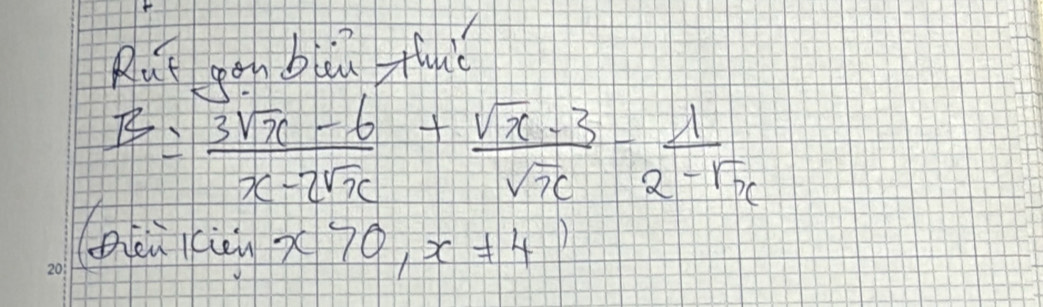 Rút gọn biểu thức
B = (3√x - 6)/(x - 2√x) + (√x - 3)/√x - 1/(2 - √x)
(Điều kiện x > 0, x ≠ 4)
20